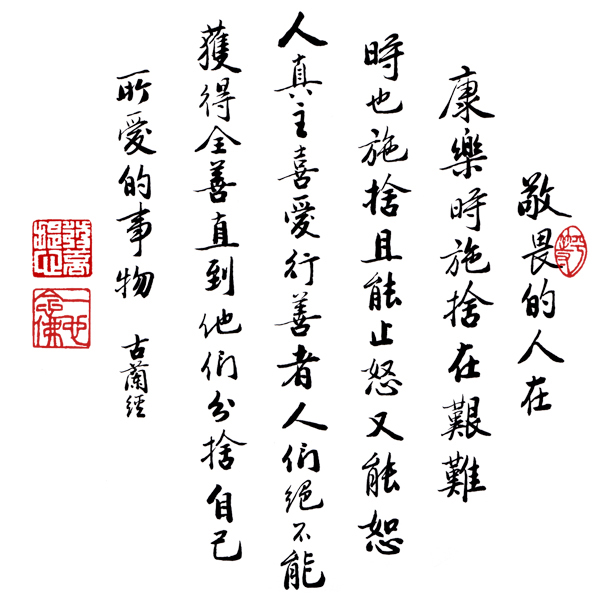 敬畏的人在
康樂時施捨在艱難
時也施捨且能止怒又能恕
人真主喜愛行善者人們絕不能
獲得全善直到他們分捨自己
所愛的事物
古蘭經